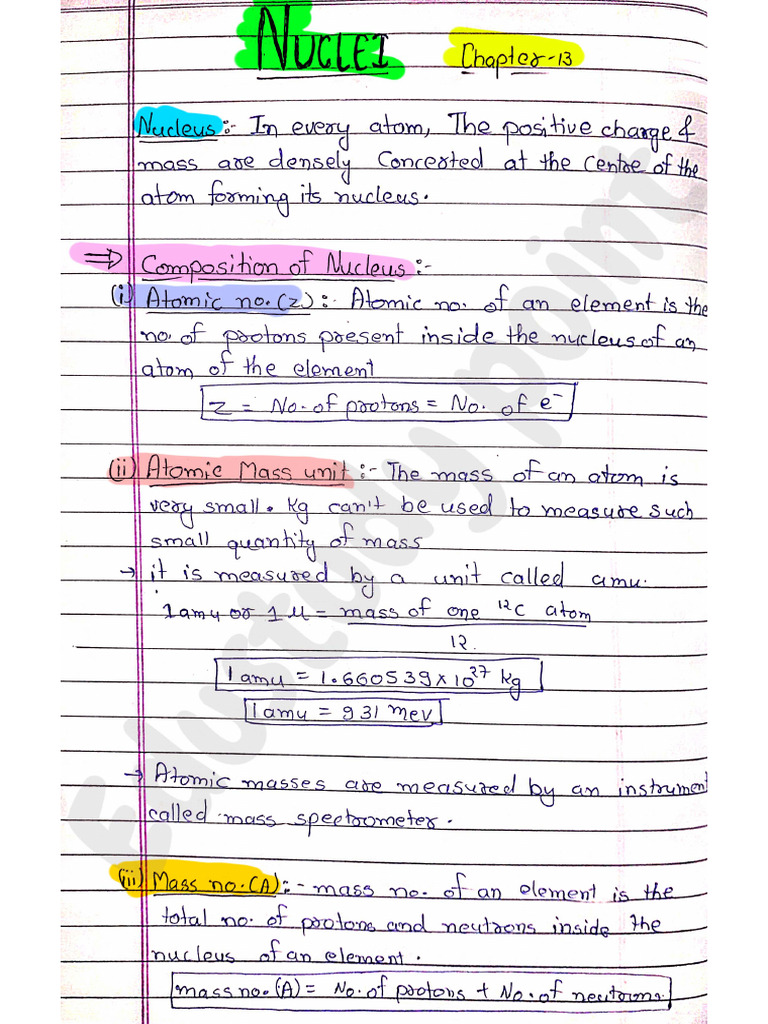 NUCLEI Chapter-13
Nucleus:- In every atom, The positive charge &
mass are densely Concerted at the centre of the
atom forming its nucleus.
⇒ Composition of Nucleus:-
(i) Atomic no.(z):- Atomic no. of an element is the
no. of protons present inside the nucleus of an
atom of the element
Z = No. of protons = No. of e⁻
(ii) Atomic Mass unit:- The mass of an atom is
very small. Kg can't be used to measure such
small quantity of mass
→ it is measured by a unit called amu.
1amu or 1 u = mass of one ¹²C atom
12.
1 amu = 1.660539×10²⁷ kg
1 amu = 931 mev
→ Atomic masses are measured by an instrument
called mass spectrometer.
(ii) Mass no.(A):- mass no. of an element is the
total no. of protons and neutrons inside the
nucleus of an element.
mass no.(A) = No. of protons + No. of neutrons.
Edustudy point